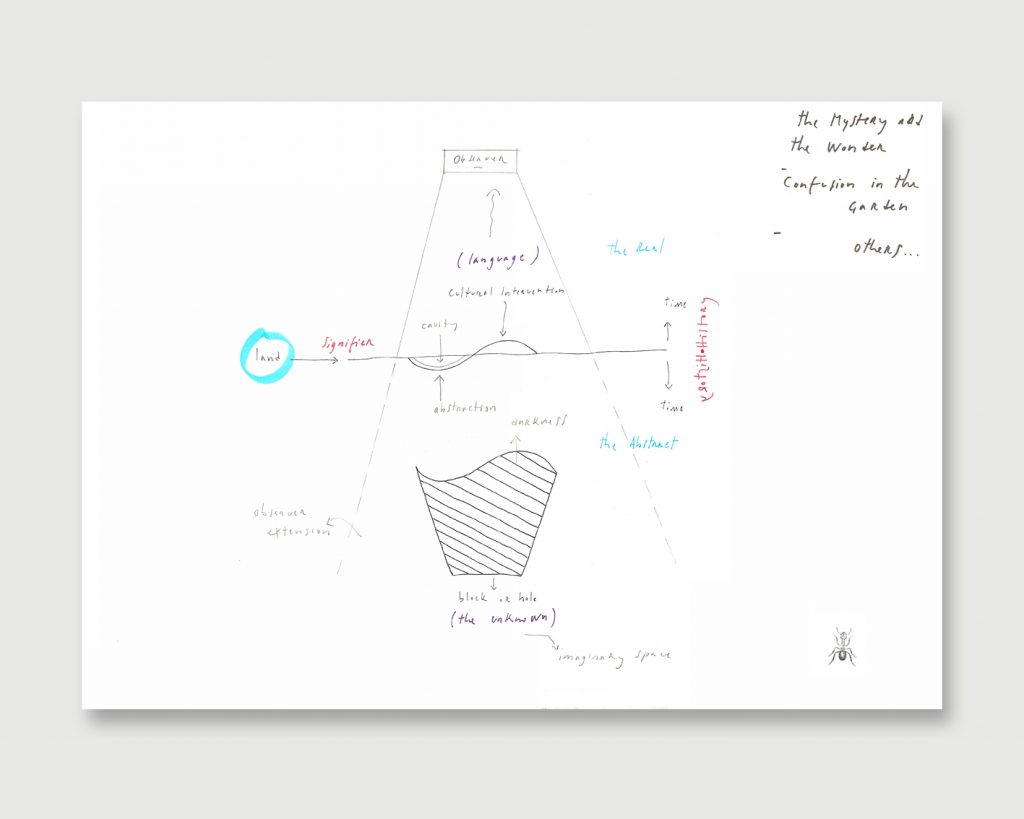 the Mystery and
the Wonder
- Confusion in the
Garden
- others...
Observer
(language)
the Real
Cultural Intervention
time
cavity
signifier
land
time
abstraction
darkness
the Abstract
observer
extension
block or hole
(the unknown)
imaginary space